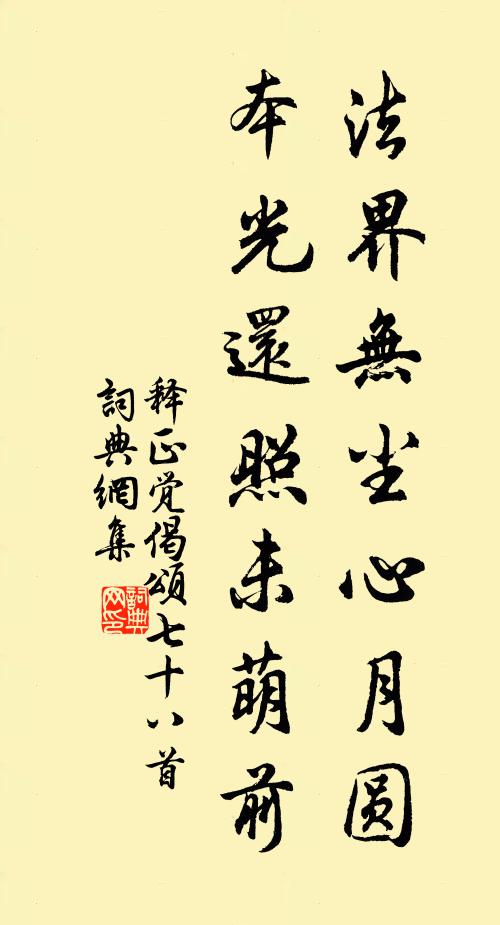 法界無尘心月圆
本光還照未萌前
释正觉偈頌七十八首
詞典網集
詞典网印